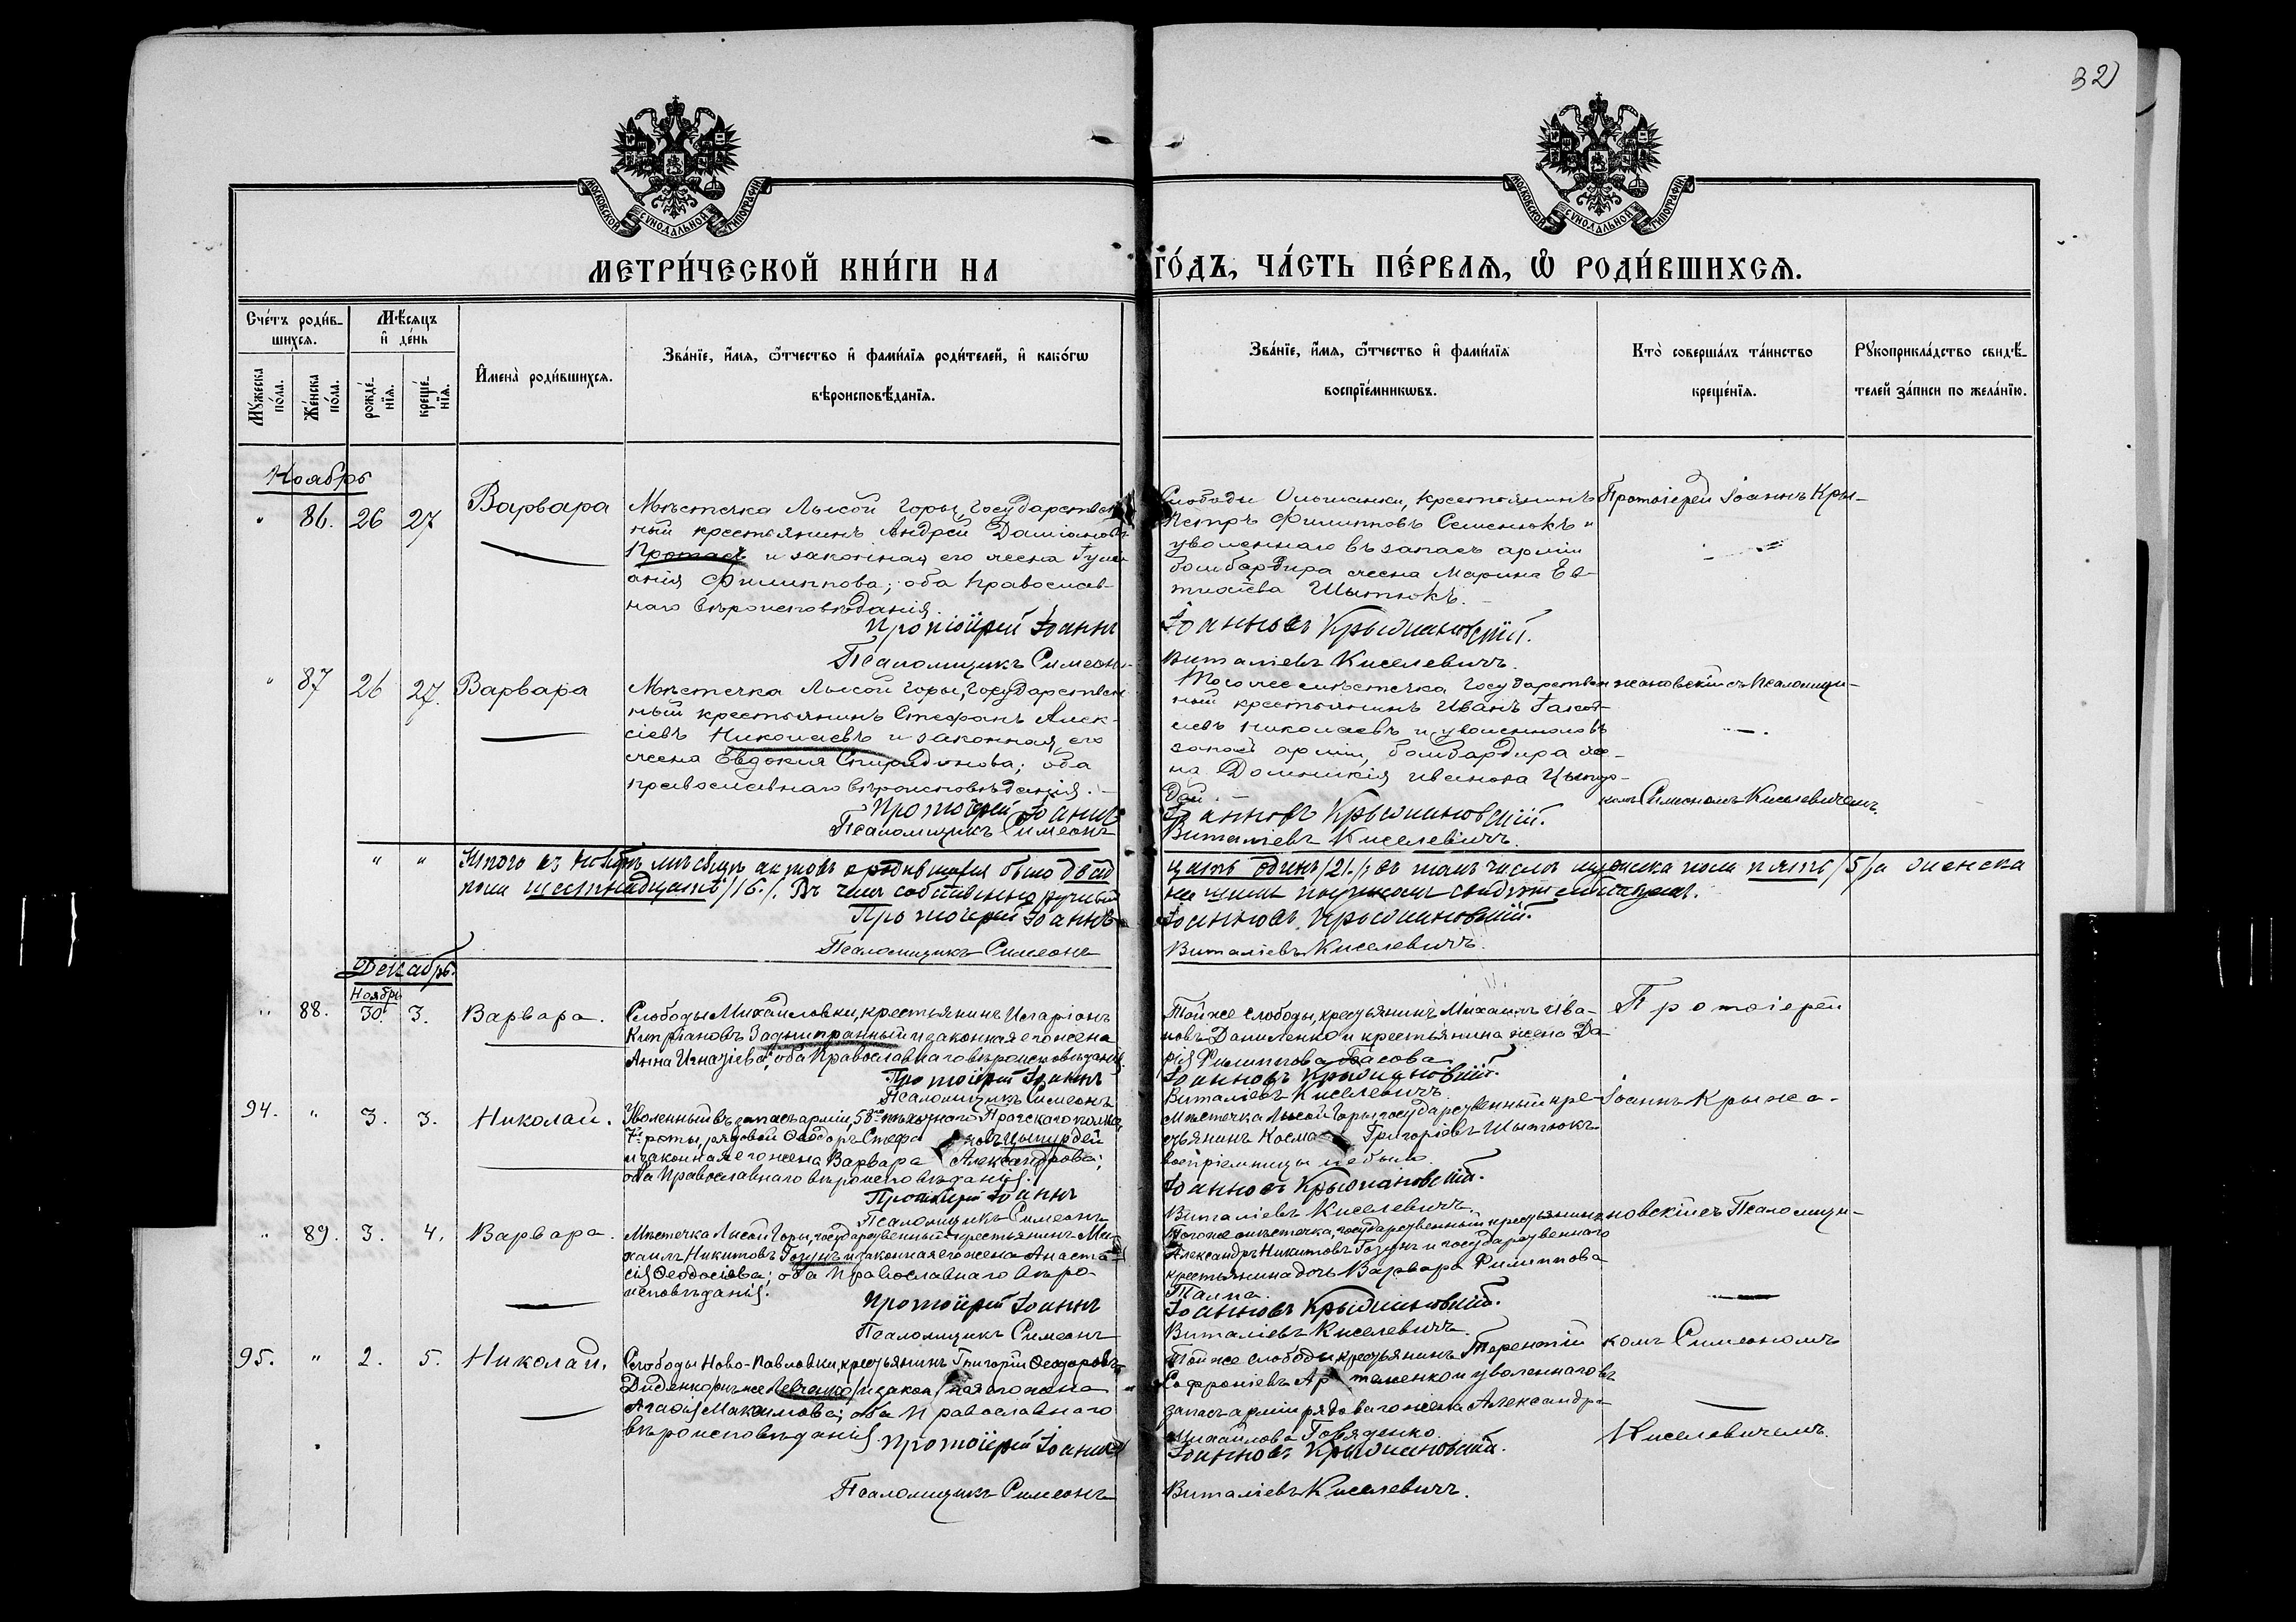 32
МОСКОВСКОЙ СУНОДАЛЬНОЙ ТИПОГРАФІИ
МОСКОВСКОЙ СУНОДАЛЬНОЙ ТИПОГРАФІИ
МЕТРИ́ЧЕСКОЙ КНИ́ГИ НА
ГО́ДЪ, ЧА́СТЬ ПЕ́РВАѦ, Ѽ РОДИ́ВШИХСѦ.
Сче́тъ роди́в-
шихсѧ.
Мѣ́сѧцъ
и҆ де́нь
Мꙋ́жеска по́ла.
Же́нска по́ла.
рожде́-нїѧ.
креще́-нїѧ.
И҆мена̀ роди́вшихсѧ.
Зва́нїе, и҆́мѧ, ѻ҆́тчество и҆ фами́лїѧ роди́телей, и҆ како́гѡ
вѣроисповѣ́данїѧ.
Зва́нїе, и҆́мѧ, ѻ҆́тчество и҆ фами́лїѧ
воспрїе́мникѡвъ.
Кто̀ соверша́лъ та́инство
креще́нїѧ.
Рꙋкоприкла́дство свидѣ́-
телей за́писи по жела́нїю.
Ноябрь
" 86. 26 27 Варвара
Мѣстечка Лысой Горы, государствен
ный крестьянинъ Андрей Даміановъ
и законная его жена
анія Филиппова; оба Православ-
наго вѣроисповѣданія.
Протоіерей Іоаннъ
Псаломщикъ Симеонъ
Слободы Ольшанки, крестьянинъ
Петръ Филипповъ Семенюкъ и
уволеннаго въ запасъ арміи
бомбардира жена Марина Ев-
Шытюкъ.
Іоанновъ Крыжановскій.
Виталіевъ Киселевичъ.
Протоіерей Іоаннъ Кры-
" 87 26 27. Варвара
Мѣстечка Лысой Горы, государствен
ный крестьянинъ Стефанъ Алек-
сіевъ Николаевъ и законная его
жена Евдокія Спиридонова; оба
православнаго вѣроисповѣданія.
Протоіерей Іоаннъ
Псаломщикъ Симеонъ
Того же мѣстечка государствен
ный крестьянинъ Иванъ
Николаевъ и уволеннаго въ
запасъ арміи, бомбардира же-
на Домникія Иванова Цымбор-
дей.
Іоанновъ Крыжановскій.
Виталіевъ Киселевичъ.
жановскій съ Псаломщи-
комъ Симеономъ Киселевичемъ.
" " Итого въ Ноябрѣ мѣсяцѣ актовъ о родившихся было двад
цать одинъ /21./, въ томъ числѣ мужеска пола пять /5/, а женска
пола шестнадцать /16./. Въ чемъ собственноручный
подписомъ свидѣтельствуемъ.
Протоіерей Іоаннъ
Іоанновъ Крыжановскій.
Псаломщикъ Симеонъ
Виталіевъ Киселевичъ.
Декабрь.
Ноябрь
" 88. 30. 3. Варвара.
Слободы Михайловки, крестьянинъ Иларіонъ
Кипріановъ Заднипранный и законная его жена
Анна Игнатіева; оба Православнаго вѣроисповѣданія.
Протоіерей Іоаннъ
Псаломщикъ Симеонъ
Той же слободы, крестьянинъ Михаилъ Ива-
новъ Даниленко и крестьянина жена Да-
рія Филиппова Басова.
Іоанновъ Крыжановскій.
Виталіевъ Киселевичъ.
Протоіерей
94. " 3. 3. Николай.
Уволенный въ запасъ арміи, 58го пѣхотнаго Прагскаго полка,
7й роты, рядовой Ѳеодоръ Стефановъ Цымирдей
и законная его жена Варвара Александрова;
оба Православнаго вѣроисповѣданія.
Протоіерей Іоаннъ
Псаломщикъ Симеонъ
Мѣстечка Лысой Горы, государственный кре-
стьянинъ Косма Григоріевъ Шытюкъ
воспріемницы не было.
Іоанновъ Крыжановскій.
Виталіевъ Киселевичъ.
Іоаннъ Крыжа-
" 89. 3. 4. Варвара.
Мѣстечка Лысой Горы, государственный крестьянинъ Ми-
хаилъ Никитовъ Гозунъ и законная его жена Анаста-
сія Ѳеодосіева; оба Православнаго вѣро-
исповѣданія.
Протоіерей Іоаннъ
Псаломщикъ Симеонъ
Того же мѣстечка, государственный крестьянинъ
Александръ Никитовъ Гозунъ и государственнаго
крестьянина дочь Варвара Филиппова
Іоанновъ Крыжановскій.
Виталіевъ Киселевичъ.
новскій съ Псаломщи-
95. " 2. 5. Николай.
Слободы Ново-Павловки, крестьянинъ Григорій Ѳеодоровъ
Диденко /онъ же Левченко/ и законная его жена
Агафія Максимова; оба Православнаго
вѣроисповѣданія.
Протоіерей Іоаннъ
Псаломщикъ Симеонъ
Той же слободы крестьянинъ Терентій
Софроніевъ Артеменко и уволеннаго въ
запасъ арміи рядоваго жена Александра
Михайлова Говяденко.
Іоанновъ Крыжановскій.
Виталіевъ Киселевичъ.
комъ Симеономъ
Киселевичемъ.